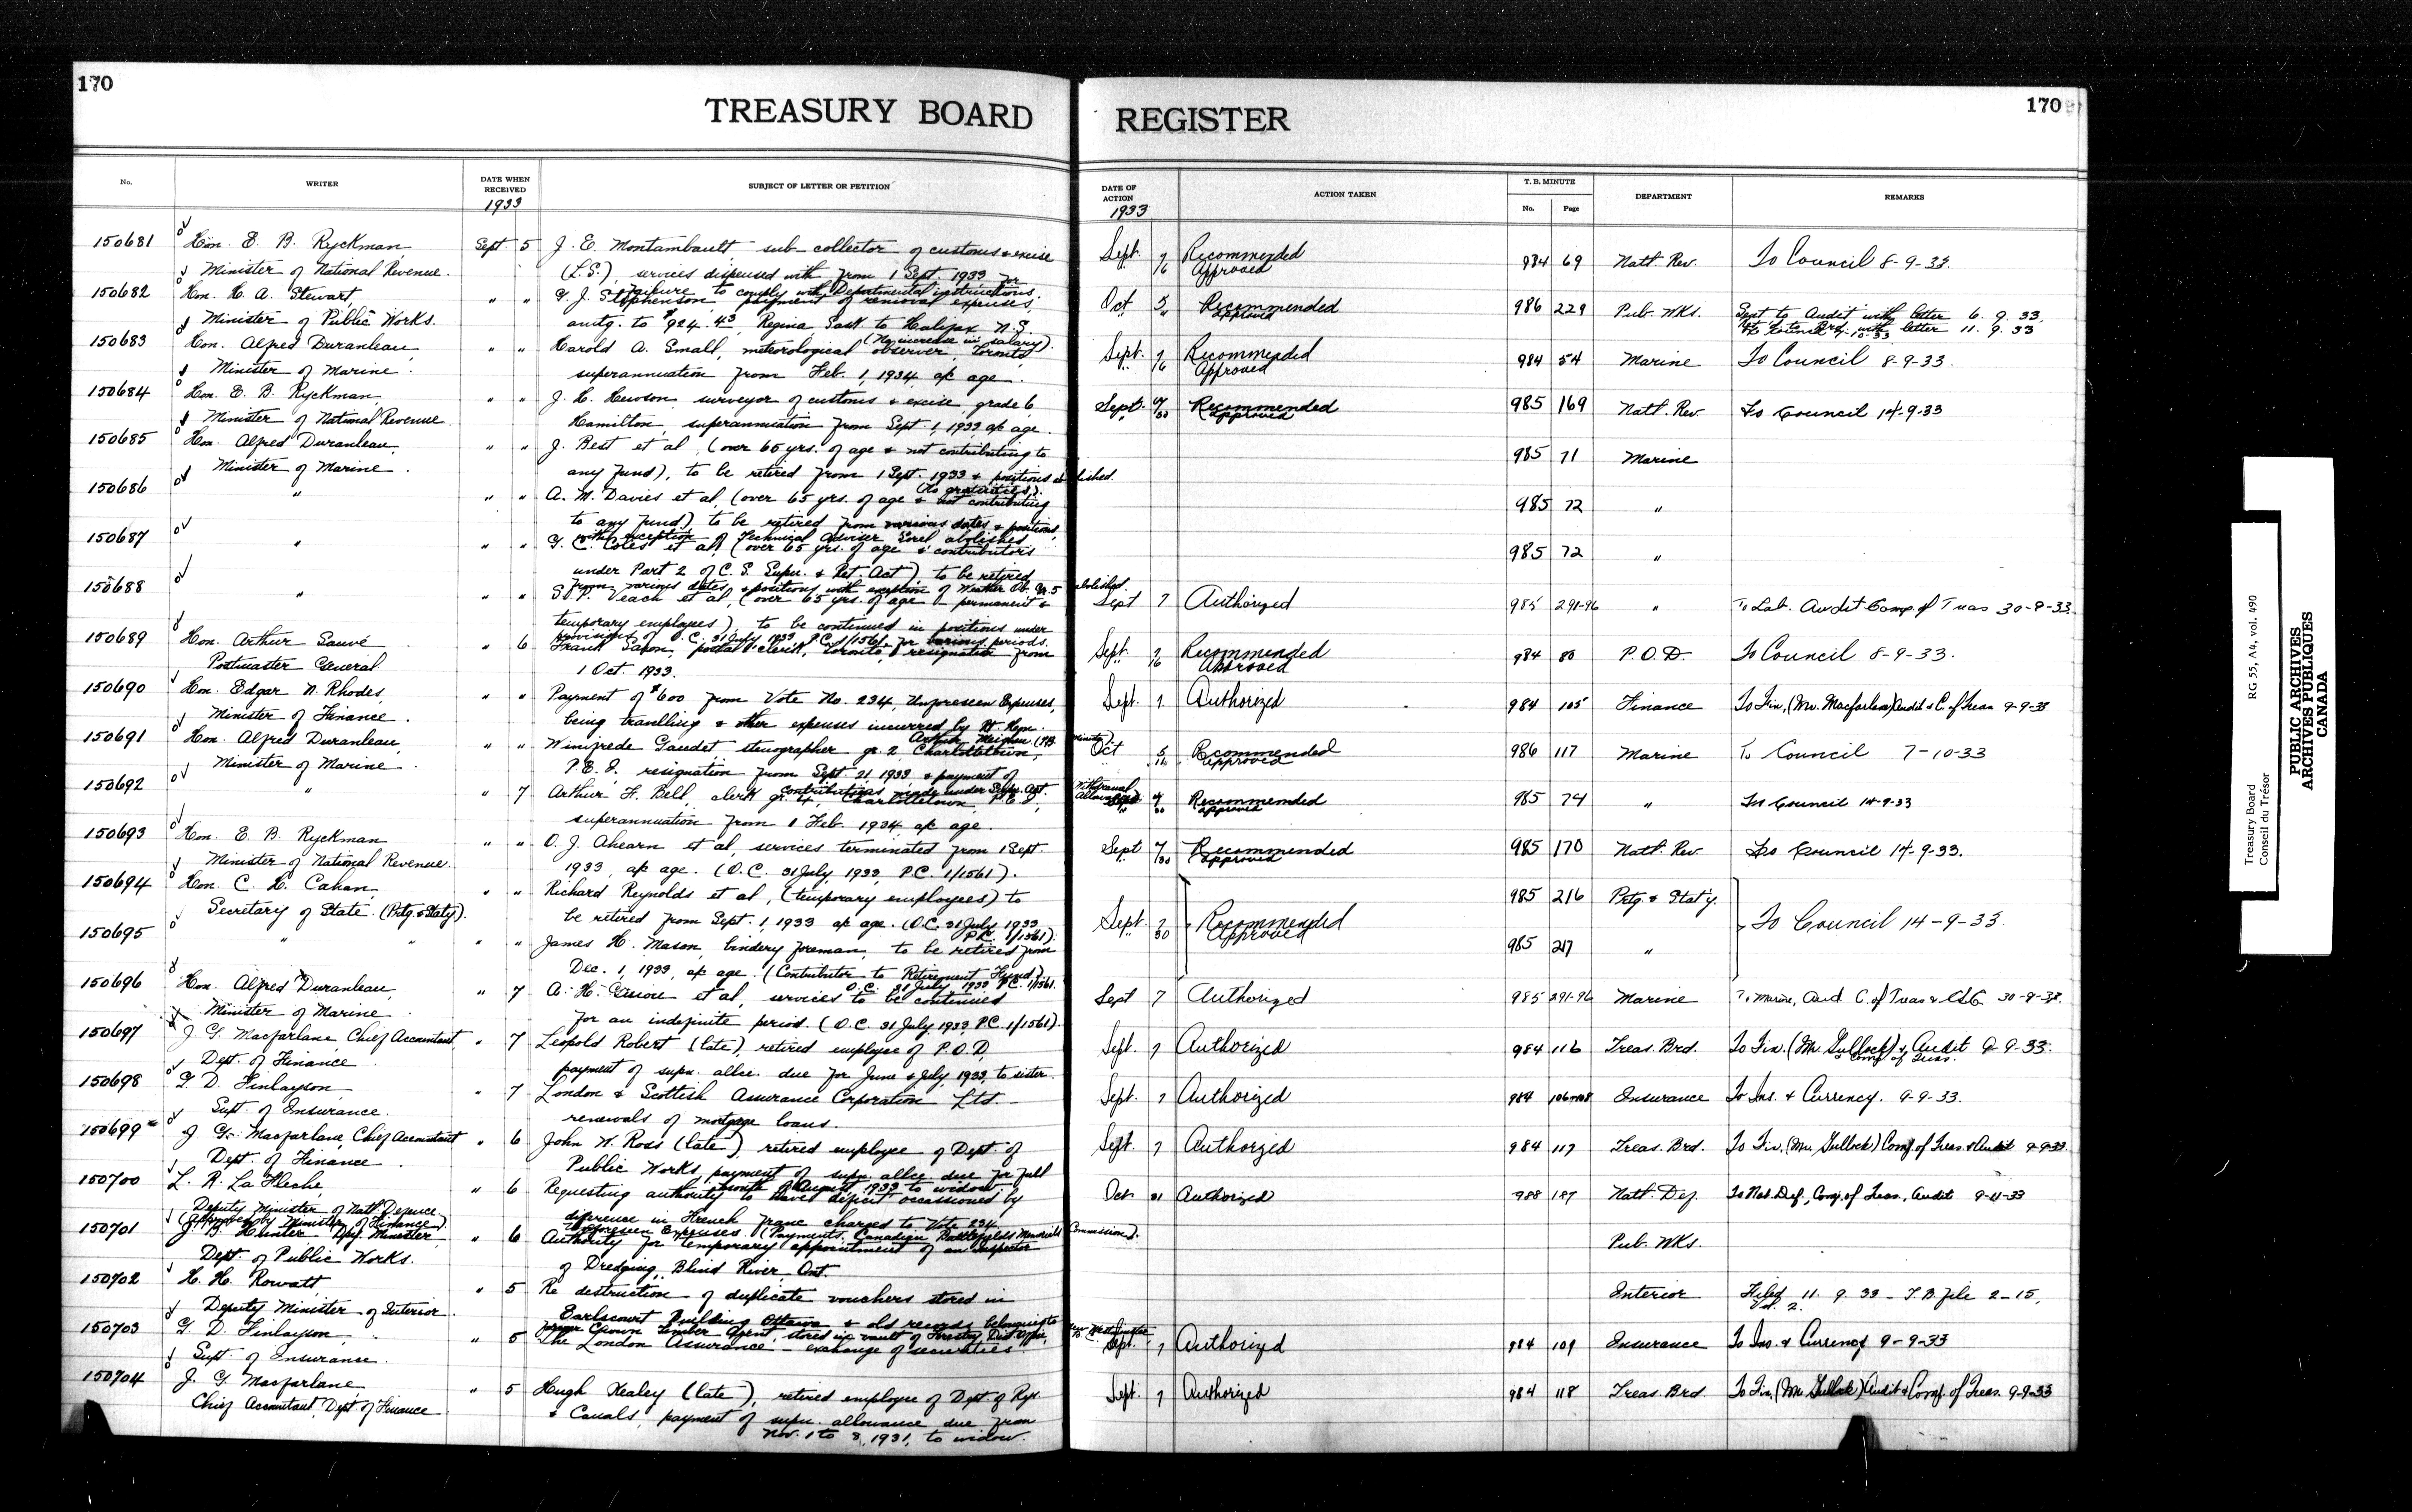 170
TREASURY BOARD REGISTER
170
No. WRITER DATE WHEN RECEIVED SUBJECT OF LETTER OR PETITION DATE OF ACTION ACTION TAKEN T. B. MINUTE No. Page DEPARTMENT REMARKS
1933 1933
150681 Hon. E. B. Ryckman, Sept. 5 J. E. Montambault sub-collector of customs & excise Sept. 7 Recommended 984 69 Natl. Rev. To Council 8-9-33.
Minister of National Revenue. (L.S.), services dispensed with from 1 Sept. 1933 for 16 Approved
failure to comply with Departmental instructions.
150682 Hon. H. A. Stewart, " " G. J. Stephenson, payment of removal expenses, Oct 5 Recommended 986 229 Pub. Wks. Sent to Audit with letter 6. 9. 33.
Minister of Public Works. amtg. to $924.43, Regina Sask to Halifax N.S. " Approved letter 11. 9. 33
(No increase in salary).
150683 Hon. Alfred Duranleau, " " Harold A. Small, meteorological observer, Toronto, Sept. 7 Recommended 984 54 Marine To Council 8-9-33.
Minister of Marine. superannuation from Feb. 1, 1934, a/c age. 16 Approved
150684 Hon. E. B. Ryckman, " " J. H. Hewson surveyor of customs & excise, grade 6, Sept. Recommended 985 169 Natl. Rev. To Council 14-9-33
Minister of National Revenue Hamilton, superannuation from Sept. 1, 1933 a/c age. 30 Approved
150685 Hon. Alfred Duranleau, " " J. Best et al, (over 65 yrs. of age & not contributing to 985 71 Marine
Minister of Marine. any fund), to be retired from 1 Sept. 1933 & positions abolished.
(No gratuities).
150686 " " " A. M. Davies et al, (over 65 yrs. of age & not contributing 985 72 "
to any fund) to be retired from various dates & positions,
with exception of Technical Adviser Sorel abolished
150687 " " " G. C. Coles et al, (over 65 yrs. of age & contributors 985 72 "
under Part 2 of C. S. Super. & Ret. Act), to be retired
from various dates, & positions with exception of Weather Ob. Gr. 5 abolished.
150688 " " " Veach et al, (over 65 yrs. of age - permanent & Sept 7 Authorized 985 291-96 " To Lab. Audit Comp. of Treas 30-9-33.
temporary employees), to be continued in positions under
provisions of O.C. 31 July 1933, P.C. 1/1561, for various periods.
150689 Hon. Arthur Sauvé " 6 Frank Saxon, postal clerk, Toronto, resignation from Sept. 7 Recommended 984 80 P.O.D. To Council 8-9-33.
Postmaster General 1 Oct. 1933. 16 Approved
150690 Hon. Edgar N. Rhodes, " " Payment of $600 from Vote No. 234, Unforeseen Expenses, Sept. 7 Authorized 984 105 Finance To Fin. (Mr. Macfarlane) Audit & C. of Treas 9-9-33
Minister of Finance. being travelling & other expenses incurred by Rt. Hon.
Arthur Meighen
150691 Hon. Alfred Duranleau, " " Winifrede Gaudet stenographer gr. 2, Charlottetown, Oct 5 Recommended 986 117 Marine To Council 7-10-33
Minister of Marine. P.E.I. resignation from Sept 21, 1933 & payment of Approved
contributions made under Super. Act. Withdrawal Allowance
150692 " " 7 Arthur F. Bell, clerk gr. 4, Charlottetown, P.E.I., Sept Recommended 985 74 " To Council 14-9-33
superannuation from 1 Feb. 1934 a/c age. 30 Approved
150693 Hon. E. B. Ryckman " " O. J. Ahearn et al, services terminated from 1 Sept Sept 7 Recommended 985 170 Natl. Rev. To Council 14-9-33.
Minister of National Revenue. 1933, a/c age. (O.C. 31 July, 1933, P.C. 1/1561). 30 Approved
150694 Hon. C. H. Cahan, " " Richard Reynolds et al, (temporary employees) to Sept. 7 Recommended 985 216 Ptg. & Stat'y. To Council 14-9-33
Secretary of State. (Prtg. & Staty). be retired from Sept. 1, 1933 a/c age. (O.C. 31 July 1933 30 Approved
P.C. 1/1561).
150695 " " " " James H. Mason, bindery foreman, to be retired from 985 217 "
Dec. 1, 1933, a/c age. (Contributor to Retirement Fund).
O.C. 31 July, 1933 P.C. 1/1561.
150696 Hon. Alfred Duranleau, " 7 A. H. et al, services to be continued Sept 7 Authorized 985 291-96 Marine To Marine, Aud. C. of Treas & 30-9-33.
Minister of Marine for an indefinite period. (O.C. 31 July, 1933, P.C. 1/1561).
150697 J. G. Macfarlane, Chief Accountant, " 7 Leopold Robert (late), retired employee of P.O.D. Sept. 7 Authorized 984 116 Treas. Brd. To Fin. (Mr. Gullock) & Audit 9-9-33.
Dept. of Finance payment of supn. allce. due for June & July, 1933, to sister. & Comp of Treas.
150698 G. D. Finlayson " 7 London & Scottish Assurance Corporation Ltd. - Sept. 7 Authorized 984 106-108 Insurance To Ins. & Currency. 9-9-33.
Supt. of Insurance. renewals of mortgage loans.
150699 J. G. Macfarlane, Chief Accountant " 6 John W. Ross (late), retired employee of Dept. of Sept. 7 Authorized 984 117 Treas. Brd. To Fin. (Mr. Gullock) Comp. of Treas. & Audit 9-9-33
Dept. of Finance. Public Works, payment of supn. allce due for full
month of August 1933 to widow.
150700 L. R. La Fleche " 6 Requesting authority to have deficit occasioned by Oct. 31 Authorized 988 187 Natl. Def. To Nat. Def., Comp. of Treas., Audit 9-11-33
Deputy Minister of Natl Defence. difference in French franc charged to Vote 234
(Approved by Minister of Finance). Unforeseen Expenses. (Payments Canadian Battlefields Memorials Commission).
150701 J. B. Hunter, Dep. Minister, " 6 Authority for temporary appointment of an Inspector Pub. Wks.
Dept. of Public Works. of Dredging, Blind River, Ont.
150702 H. H. Rowatt, " 5 Re destruction of duplicate vouchers stored in Interior Filed 11. 9. 33 - T.B. file 2-15,
Deputy Minister of Interior. Earlscourt Building Ottawa & old records belonging to Vol. 2.
former Crown Timber Agent, stored in vault of Forestry Dist. Office, New Westminster
150703 G. D. Finlayson, " 5 The London Assurance - exchange of securities Sept. 7 Authorized 984 109 Insurance To Ins. & Currency 9-9-33
Supt. of Insurance.
150704 J. G. Macfarlane " 5 Hugh Kealey (late), retired employee of Dept of Rys. Sept. 7 Authorized 984 118 Treas. Brd. To Fin. (Mr. Gullock) Audit & Comp. of Treas. 9-9-33
Chief Accountant, Dept of Finance & Canals, payment of supn. allowance due from
Nov. 1 to 8, 1931, to widow.
Treasury Board RG 55, A4, vol. 490
Conseil du Trésor
PUBLIC ARCHIVES
ARCHIVES PUBLIQUES
CANADA